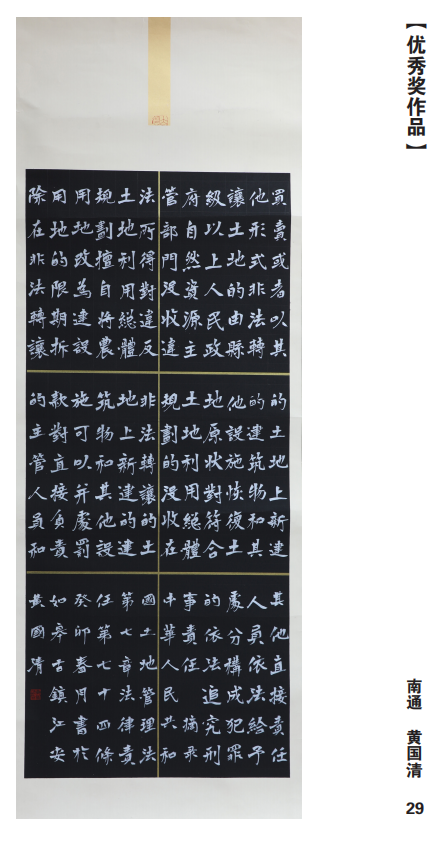 【优秀奖作品】
買賣或者以其
他形式非法轉
讓土地的由縣
級以上人民政
府自然資源主
管部門沒收違
法所得對違反
土地利用總體
規劃擅自將農
用地改為建設
用地的限期拆
除在非法轉讓
的土地上新建
的建筑物和其
他設施恢復土
地原狀對符合
土地利用總體
規劃的沒收在
非法轉讓的土
地上新建的建
筑物和其他設
施可以并處罰
款對直接負責
的主管人員和
其他直接責任
人員依法給予
處分構成犯罪
的依法追究刑
事責任 摘錄
中華人民共和
國土地管理法
第七章法律責
任第七十四條
癸卯春月書於
如皋古鎮江安
黄國清
南通 黄国清
29